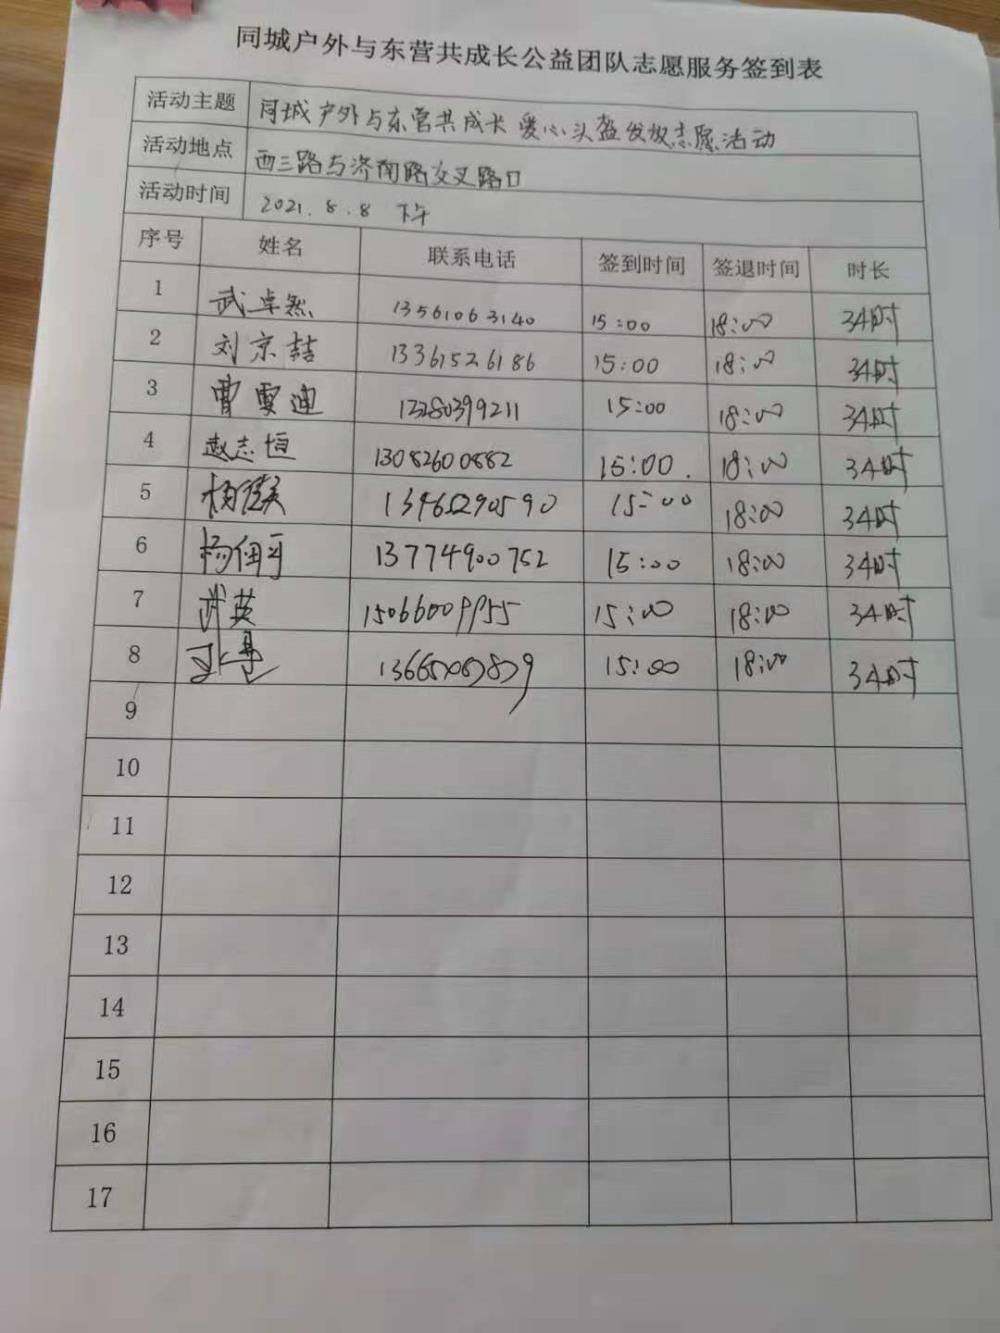 同城户外与东营共成长公益团队志愿服务签到表
活动主题 同城户外与东营共成长 爱心头盔发放志愿活动
活动地点 西三路与济南路交叉路口
活动时间 2021.8.8 下午
序号 姓名 联系电话 签到时间 签退时间 时长
1 武卓然 13561063140 15:00 18:00 3小时
2 刘京喆 13361526186 15:00 18:00 3小时
3 曹雯迪 13280399211 15:00 18:00 3小时
4 赵志恒 13082600882 15:00. 18:00 3小时
5 15:00 18:00 3小时
6 杨佃可 13774900752 15:00 18:00 3小时
7 武英 15066009955 15:00 18:00 3小时
8 15:00 18:00 3小时
9
10
11
12
13
14
15
16
17